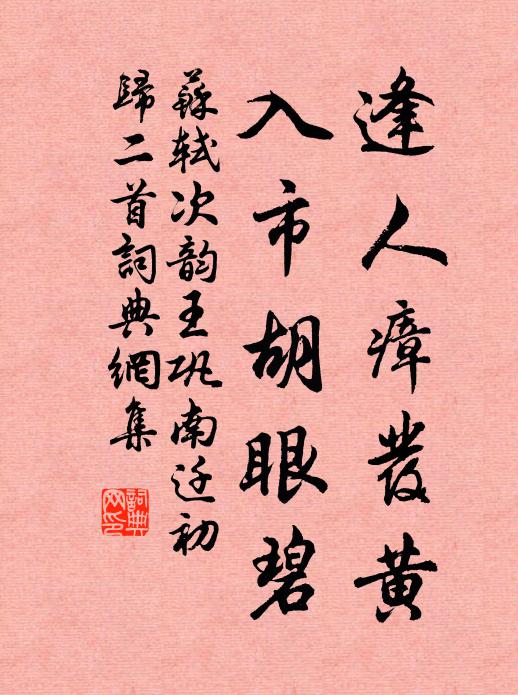 逢人瘴發黃
入市胡眼碧
蘇軾次韵王巩南迁初
歸二首詞典網集
詞典网印